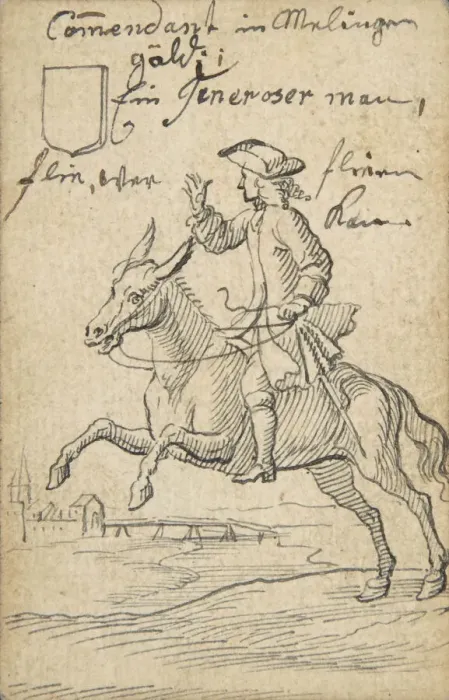 Com̄endant in Melingen
gäld:;
Ein Generoser man,
flie, wer fliehen
kan